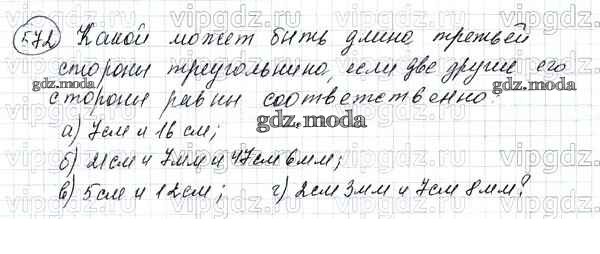 572 Какой может быть длина третьей
стороны треугольника, если две другие его
стороны равны соответственно:
а) 7см и 16 см;
б) 21см и 7мм и 47см 6мм;
в) 5см и 12см; г) 2см 3мм и 7см 8мм?
gdz.moda
gdz.moda
gdz.moda